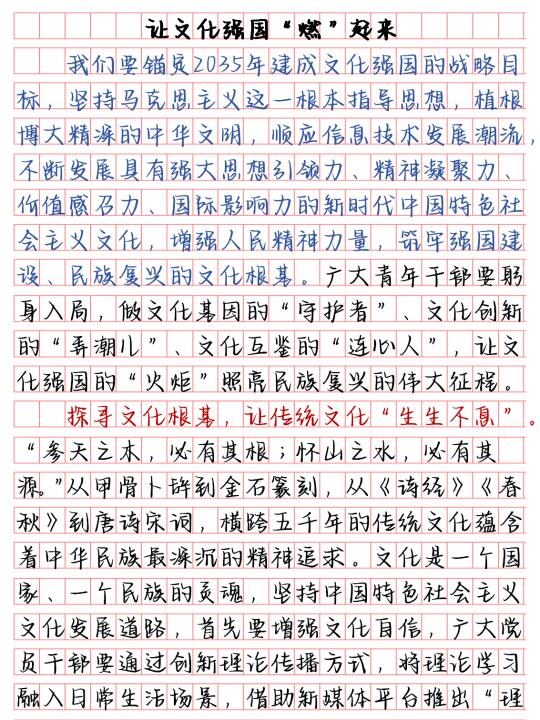 让文化强国“燃”起来
我们要锚定2035年建成文化强国的战略目
标，坚持马克思主义这一根本指导思想，植根
博大精深的中华文明，顺应信息技术发展潮流，
不断发展具有强大思想引领力、精神凝聚力、
价值感召力、国际影响力的新时代中国特色社
会主义文化，增强人民精神力量，筑牢强国建
设、民族复兴的文化根基。广大青年干部要躬
身入局，做文化基因的“守护者”、文化创新
的“弄潮儿”、文化互鉴的“连心人”，让文
化强国的“火炬”照亮民族复兴的伟大征程。
探寻文化根基，让传统文化“生生不息”。
“参天之木，必有其根；怀山之水，必有其
源。”从甲骨卜辞到金石篆刻，从《诗经》《春
秋》到唐诗宋词，横跨五千年的传统文化蕴含
着中华民族最深沉的精神追求。文化是一个国
家、一个民族的灵魂，坚持中国特色社会主义
文化发展道路，首先要增强文化自信，广大党
员干部要通过创新理论传播方式，将理论学习
融入日常生活场景，借助新媒体平台推出“理